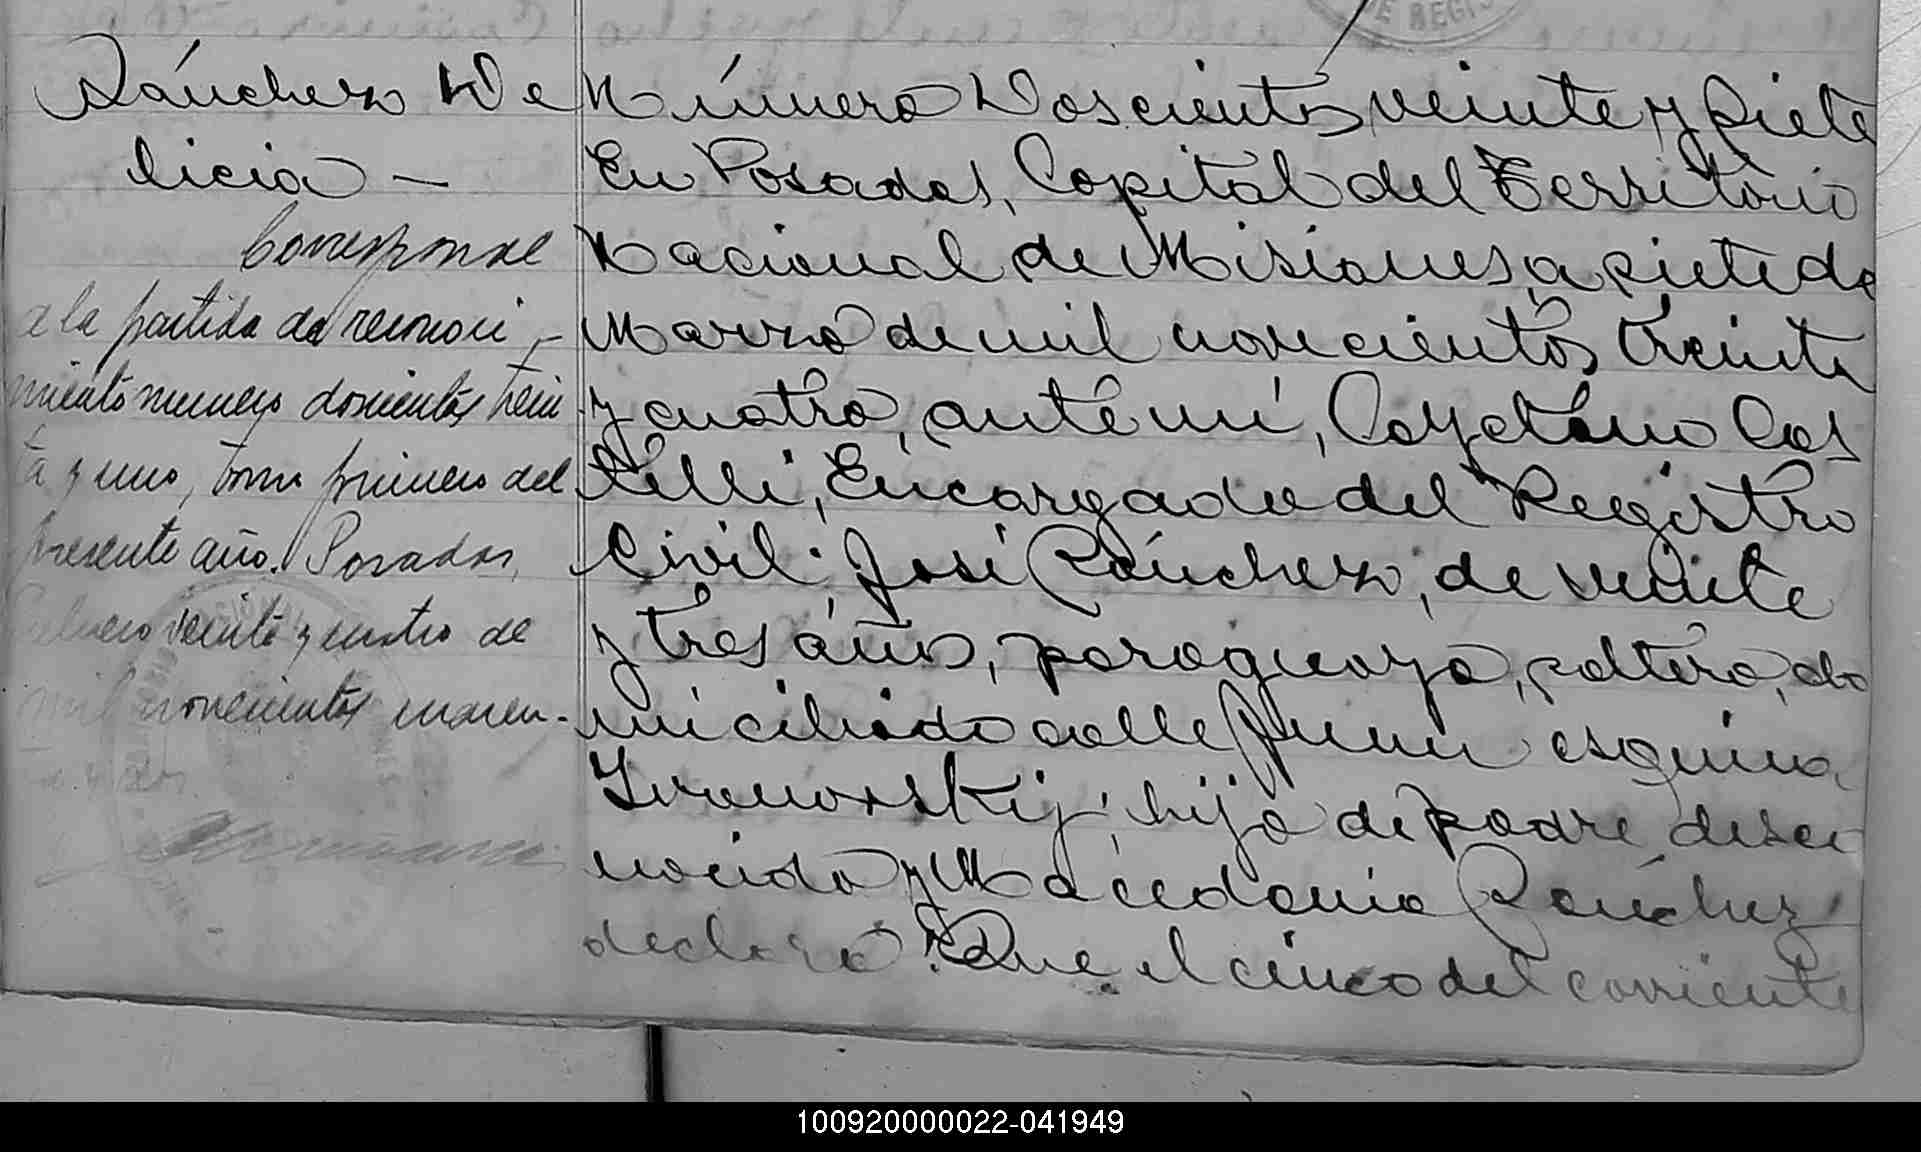 Sánchez De
licia —
Corresponde
a la partida de reconoci-
miento numero doscientos trein
ta y uno, tomo primero del
presente año. Posadas,
Febrero veinte y cuatro de
mil novecientos cuaren-
DE REGIS
Número Doscientos veinte y siete
En Posadas, Capital del Territorio
Nacional de Misiones, a siete de
Marzo de mil novecientos treinta
y cuatro, ante mí, Cayetano Cas
telli, Encargado del Registro
Civil; José Sánchez, de veinte
y tres años, paraguayo, soltero, do
miciliado calle Junin esquina
Ivanowskij, hijo de padre desco
nocido y Macedonia Sánchez
declaró: Que el cinco del corriente
100920000022-041949